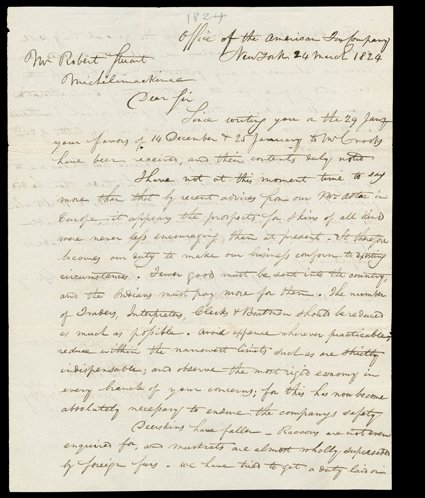 1824
Office of the American Fur Company
New York 24 March 1824
Mr. Robert Stuart
Michilimackinac
Dear Sir
Since writing you on the 29 Jany
your favors of 14 December & 25 January to Mr Crooks
have been received, and their contents duly noted
I have not at this moment time to say
more than that by recent advices from our Mr Astor in
Europe, it appears the prospects for skins of all kind
were never less encouraging than at present. It therefore
becomes our duty to make our business conform to existing
circumstances. Fewer good must be sent into the country,
and the Indians must pay more for them. The number
of Traders, Interpreters, Clerks & Boatmen should be reduced
as much as possible. Avoid expence wherever practicable;
reduce within the narrowest limits such as are strictly
indispensable; and observe the most rigid economy in
every branch of your concerns; for this has now become
absolutely necessary to endure the companys safety
Deerskins have fallen. Racoons are not even
enquired for, and muskrats are almost wholly superseded
by foreign furs. We have tried to get a duty laid on